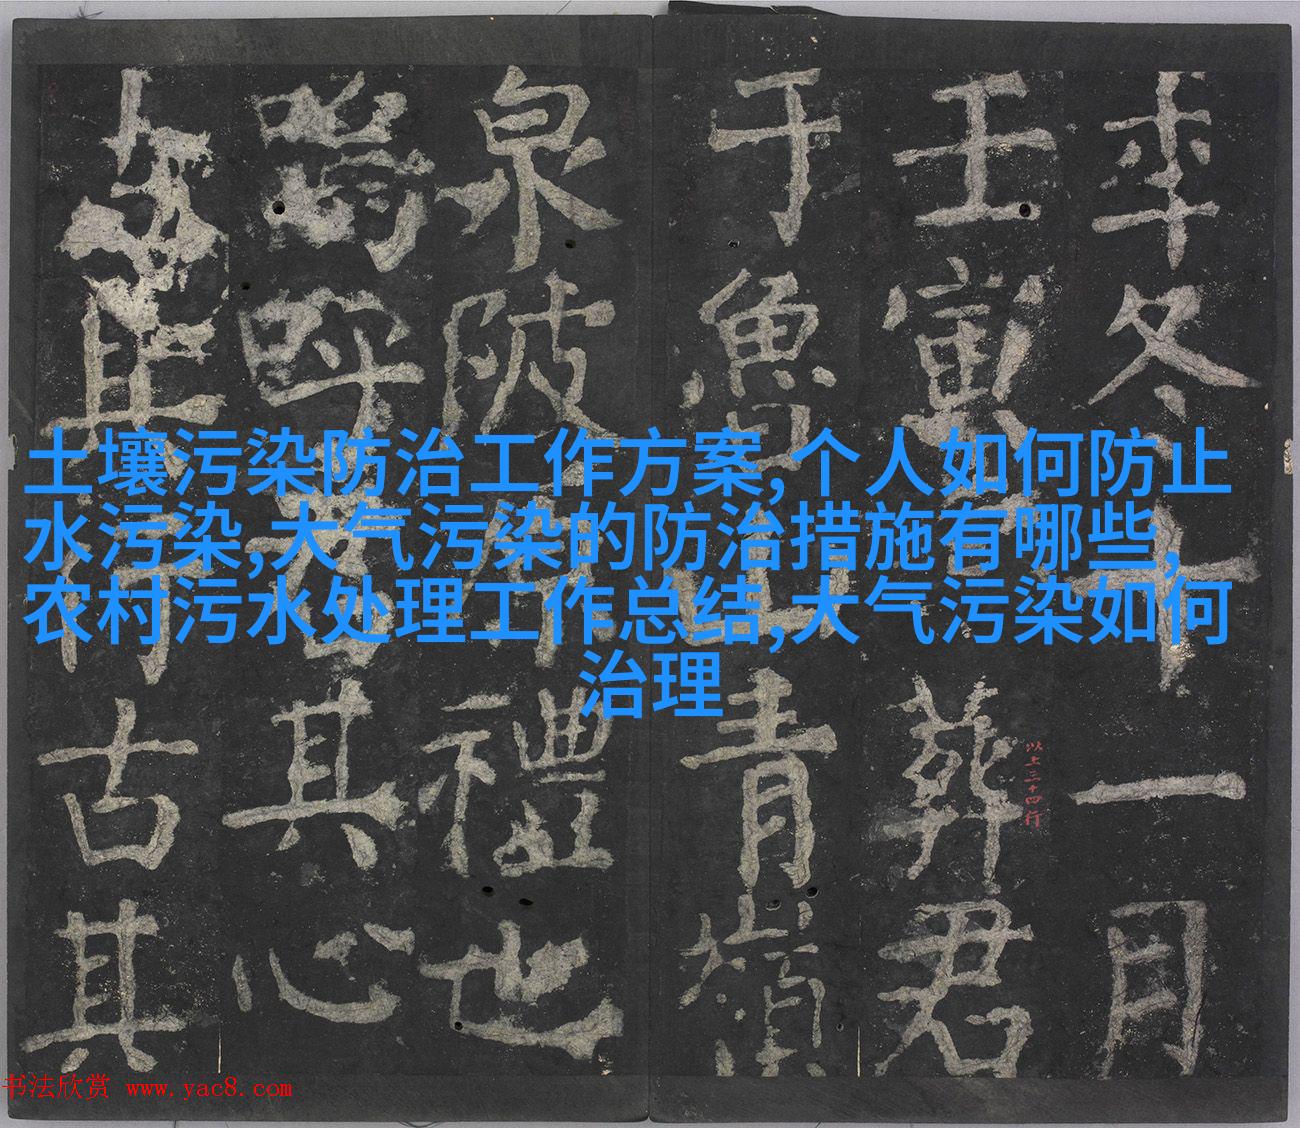 土壤污染防治工作方案,个人如何防止
水污染,大气污染的防治措施有哪些,
农村污水处理工作总结,大气污染如何
治理
年冬十一月
壬寅葬君
于魯山青嶺
泉陂禮也
嗚呼君其心
其行古其
以上三十四行
书法欣赏 www.yac8.com